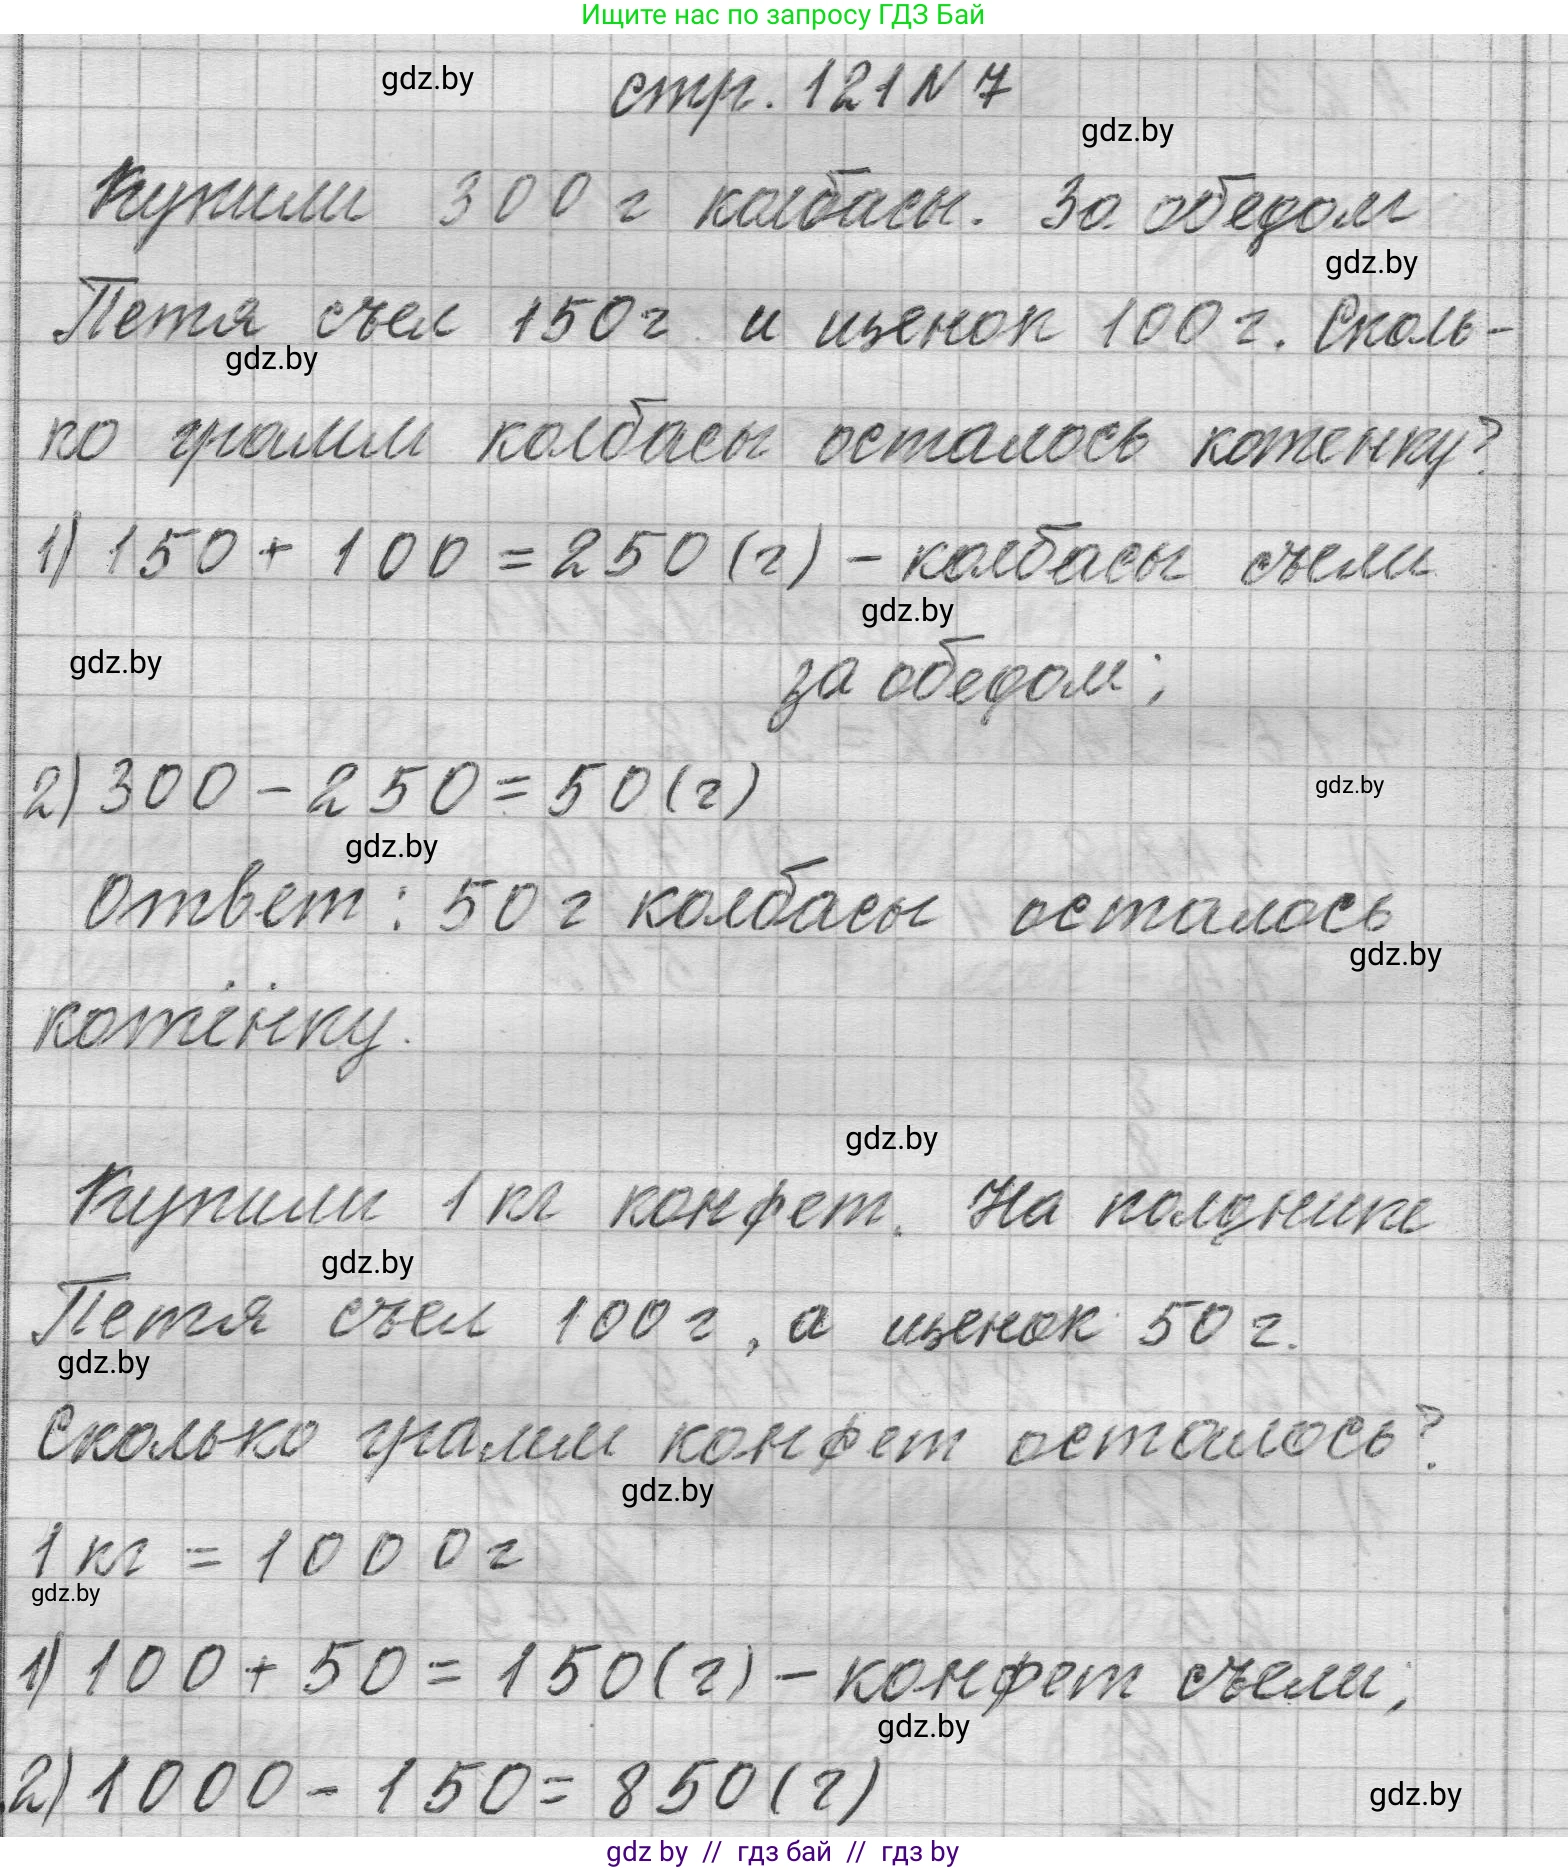 Ищите нас по запросу ГДЗ Бай
gdz.by
стр. 121 N 7
gdz.by
Купили 300 г колбасы. За обедом
gdz.by
Петя съел 150 г и щенок 100 г. Сколь-
gdz.by
ко грамм колбасы осталось котенку?
1) 150 + 100 = 250 (г) - колбасы съели
gdz.by
gdz.by
за обедом;
2) 300 - 250 = 50 (г)
gdz.by
gdz.by
Ответ: 50 г колбасы осталось
gdz.by
котёнку.
gdz.by
Купили 1 кг конфет. На полднике
gdz.by
Петя съел 100 г, а щенок 50 г.
gdz.by
Сколько грамм конфет осталось?
gdz.by
1 кг = 1000 г
gdz.by
1) 100 + 50 = 150 (г) - конфет съели;
gdz.by
2) 1000 - 150 = 850 (г)
gdz.by
gdz by // гдз бай // gdz by